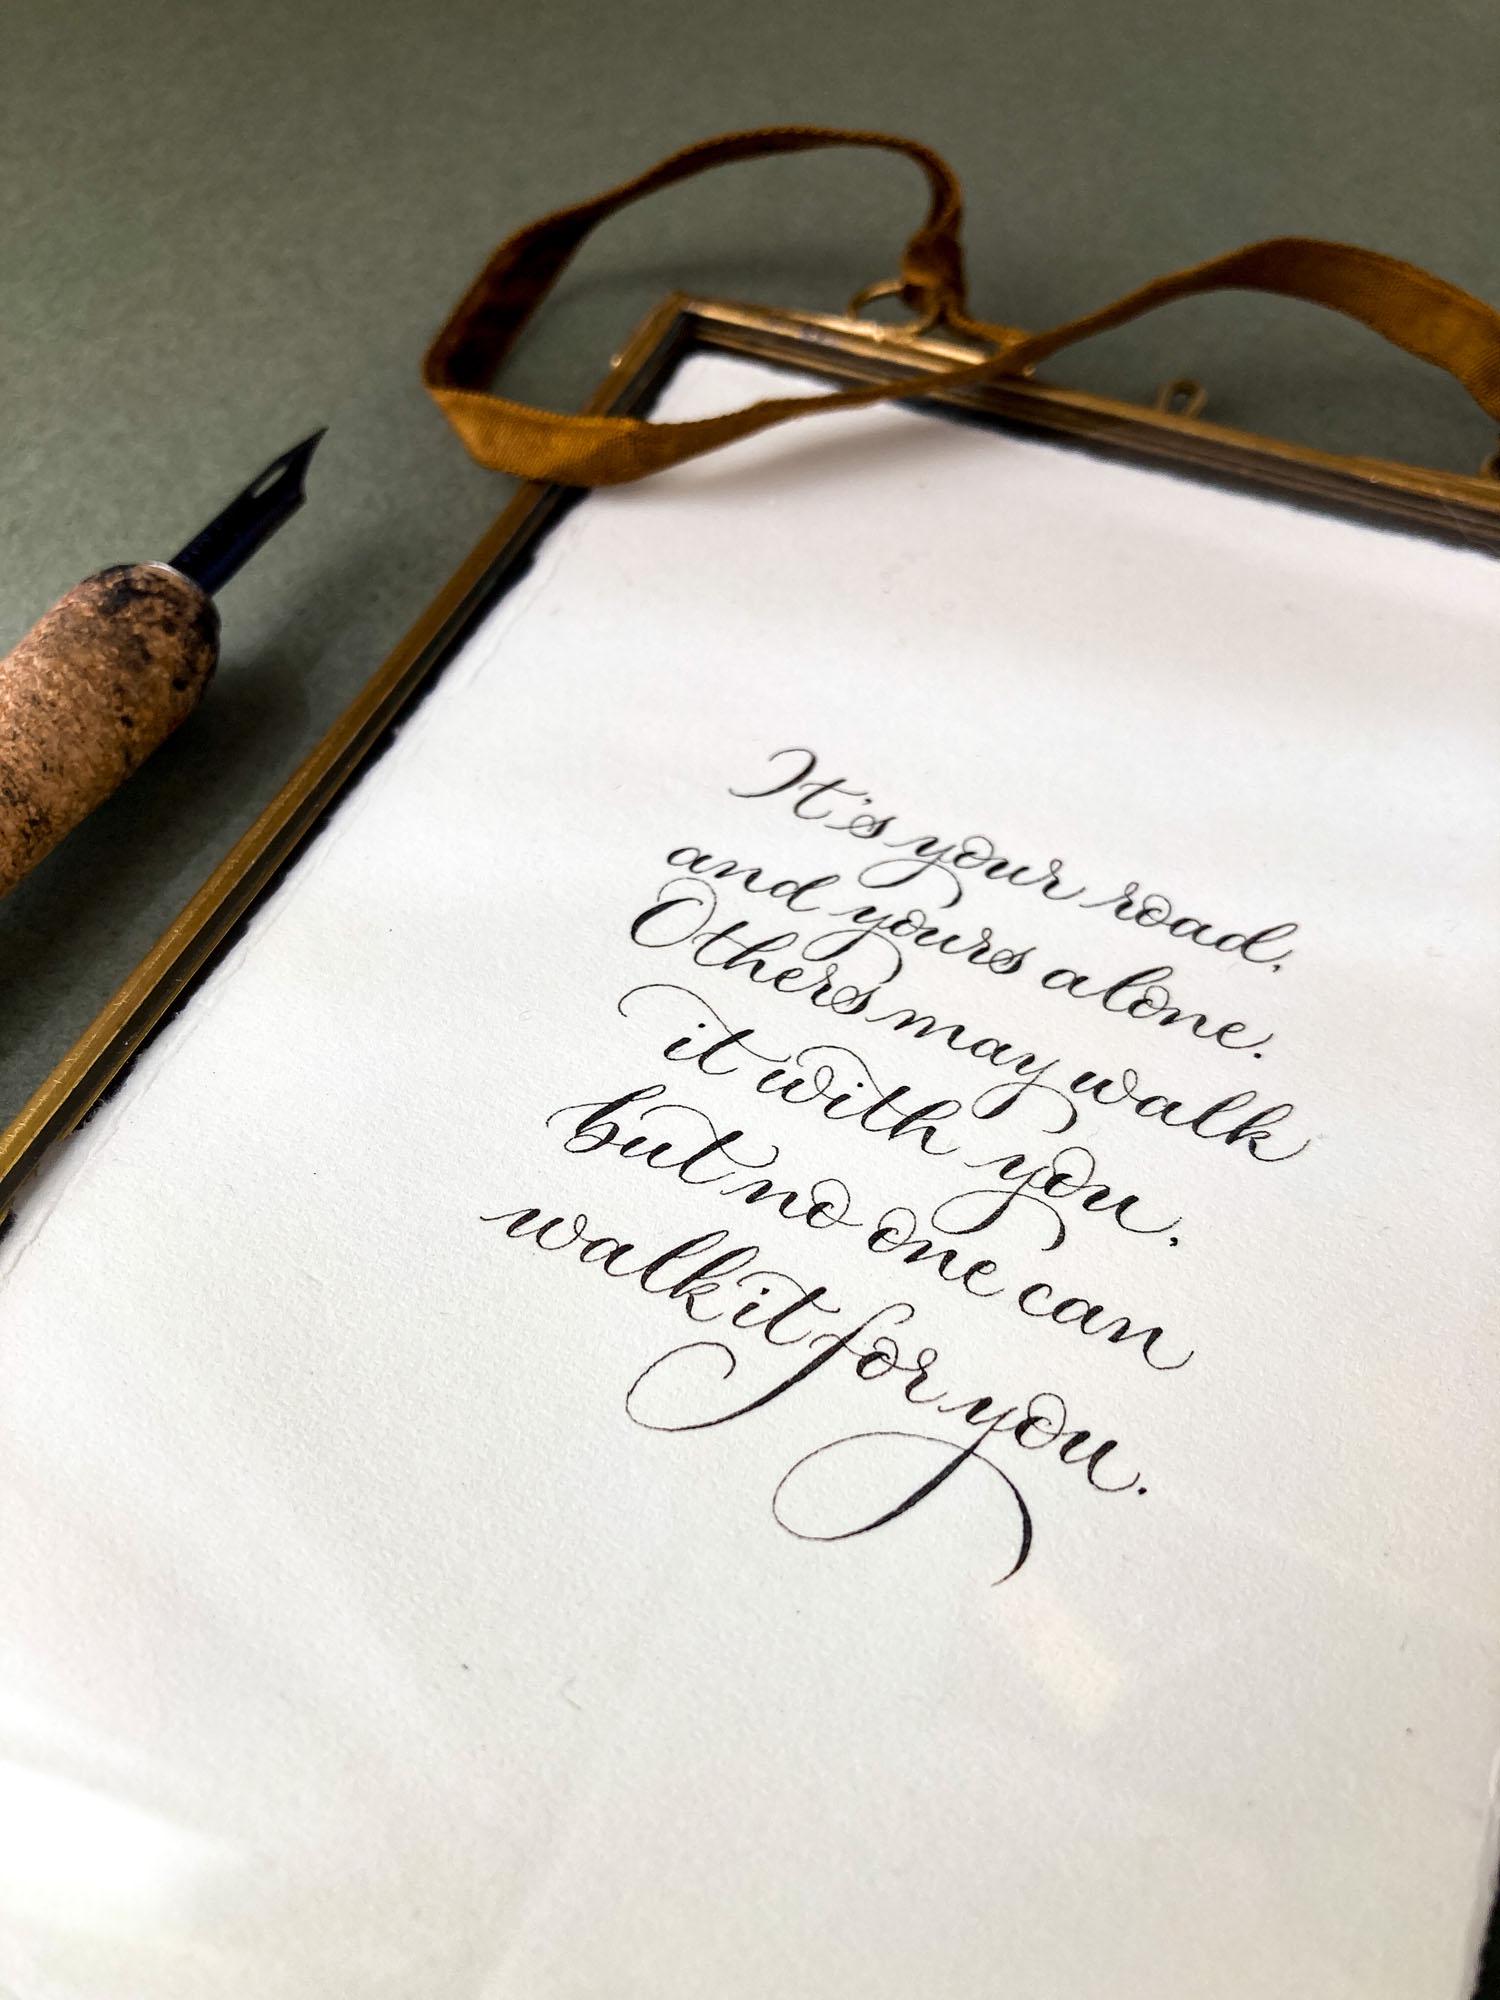 It's your road,
and yours alone.
Others may walk
it with you,
but no one can
walk it for you.